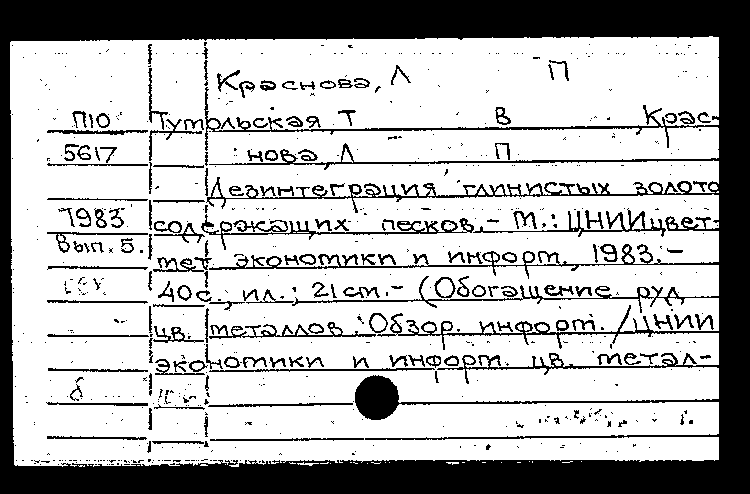 Краснова, Л П
П10 Тутольская, Т В , Крас-
5617 нова, Л П
Дезинтеграция глинистых золото
1983 содержащих песков.- М.: ЦНИИцвет-
Вып. 5. мет экономики и информ., 1983.-
40 с., ил.; 21 см.- (Обогащение руд
цв. металлов : Обзор. информ. / ЦНИИ
экономики и информ. цв. метал-
б